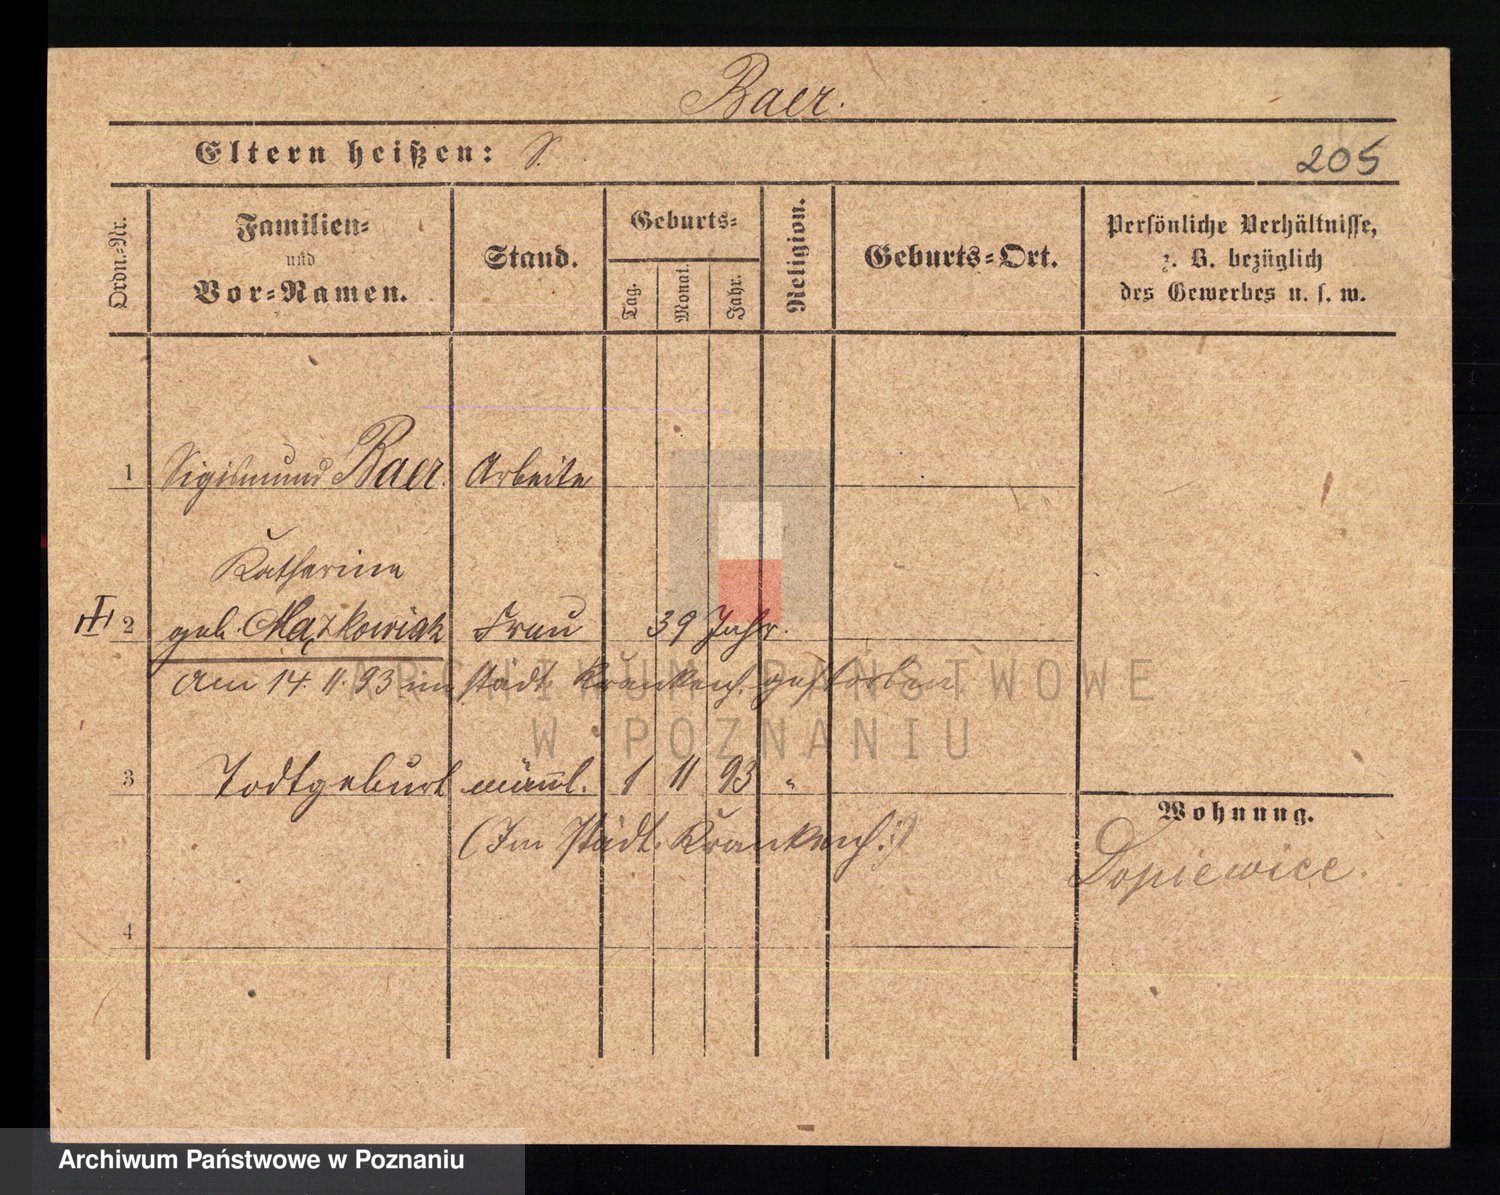 Baer.
Eltern heißen: S.
205
Ordn.-Nr.
Familien-
und
Vor-Namen.
Stand.
Geburts-
Tag.
Monat.
Jahr.
Religion.
Geburts-Ort.
Persönliche Verhältnisse,
z. B. bezüglich
des Gewerbes u. s. w.
1 Sigismund Baer. Arbeiter
Katharina
2 geb. Mązkowiak Frau 39 Jahr.
Am 14. 11. 93 im städt. Krankenh. gestorben
ARCHIWUM PAŃSTWOWE
W POZNANIU
3 Todtgeburt männl. 1 11 93 "
(Im Städt. Krankenh.:)
Wohnung.
Dopiewice.
4
Archiwum Państwowe w Poznaniu